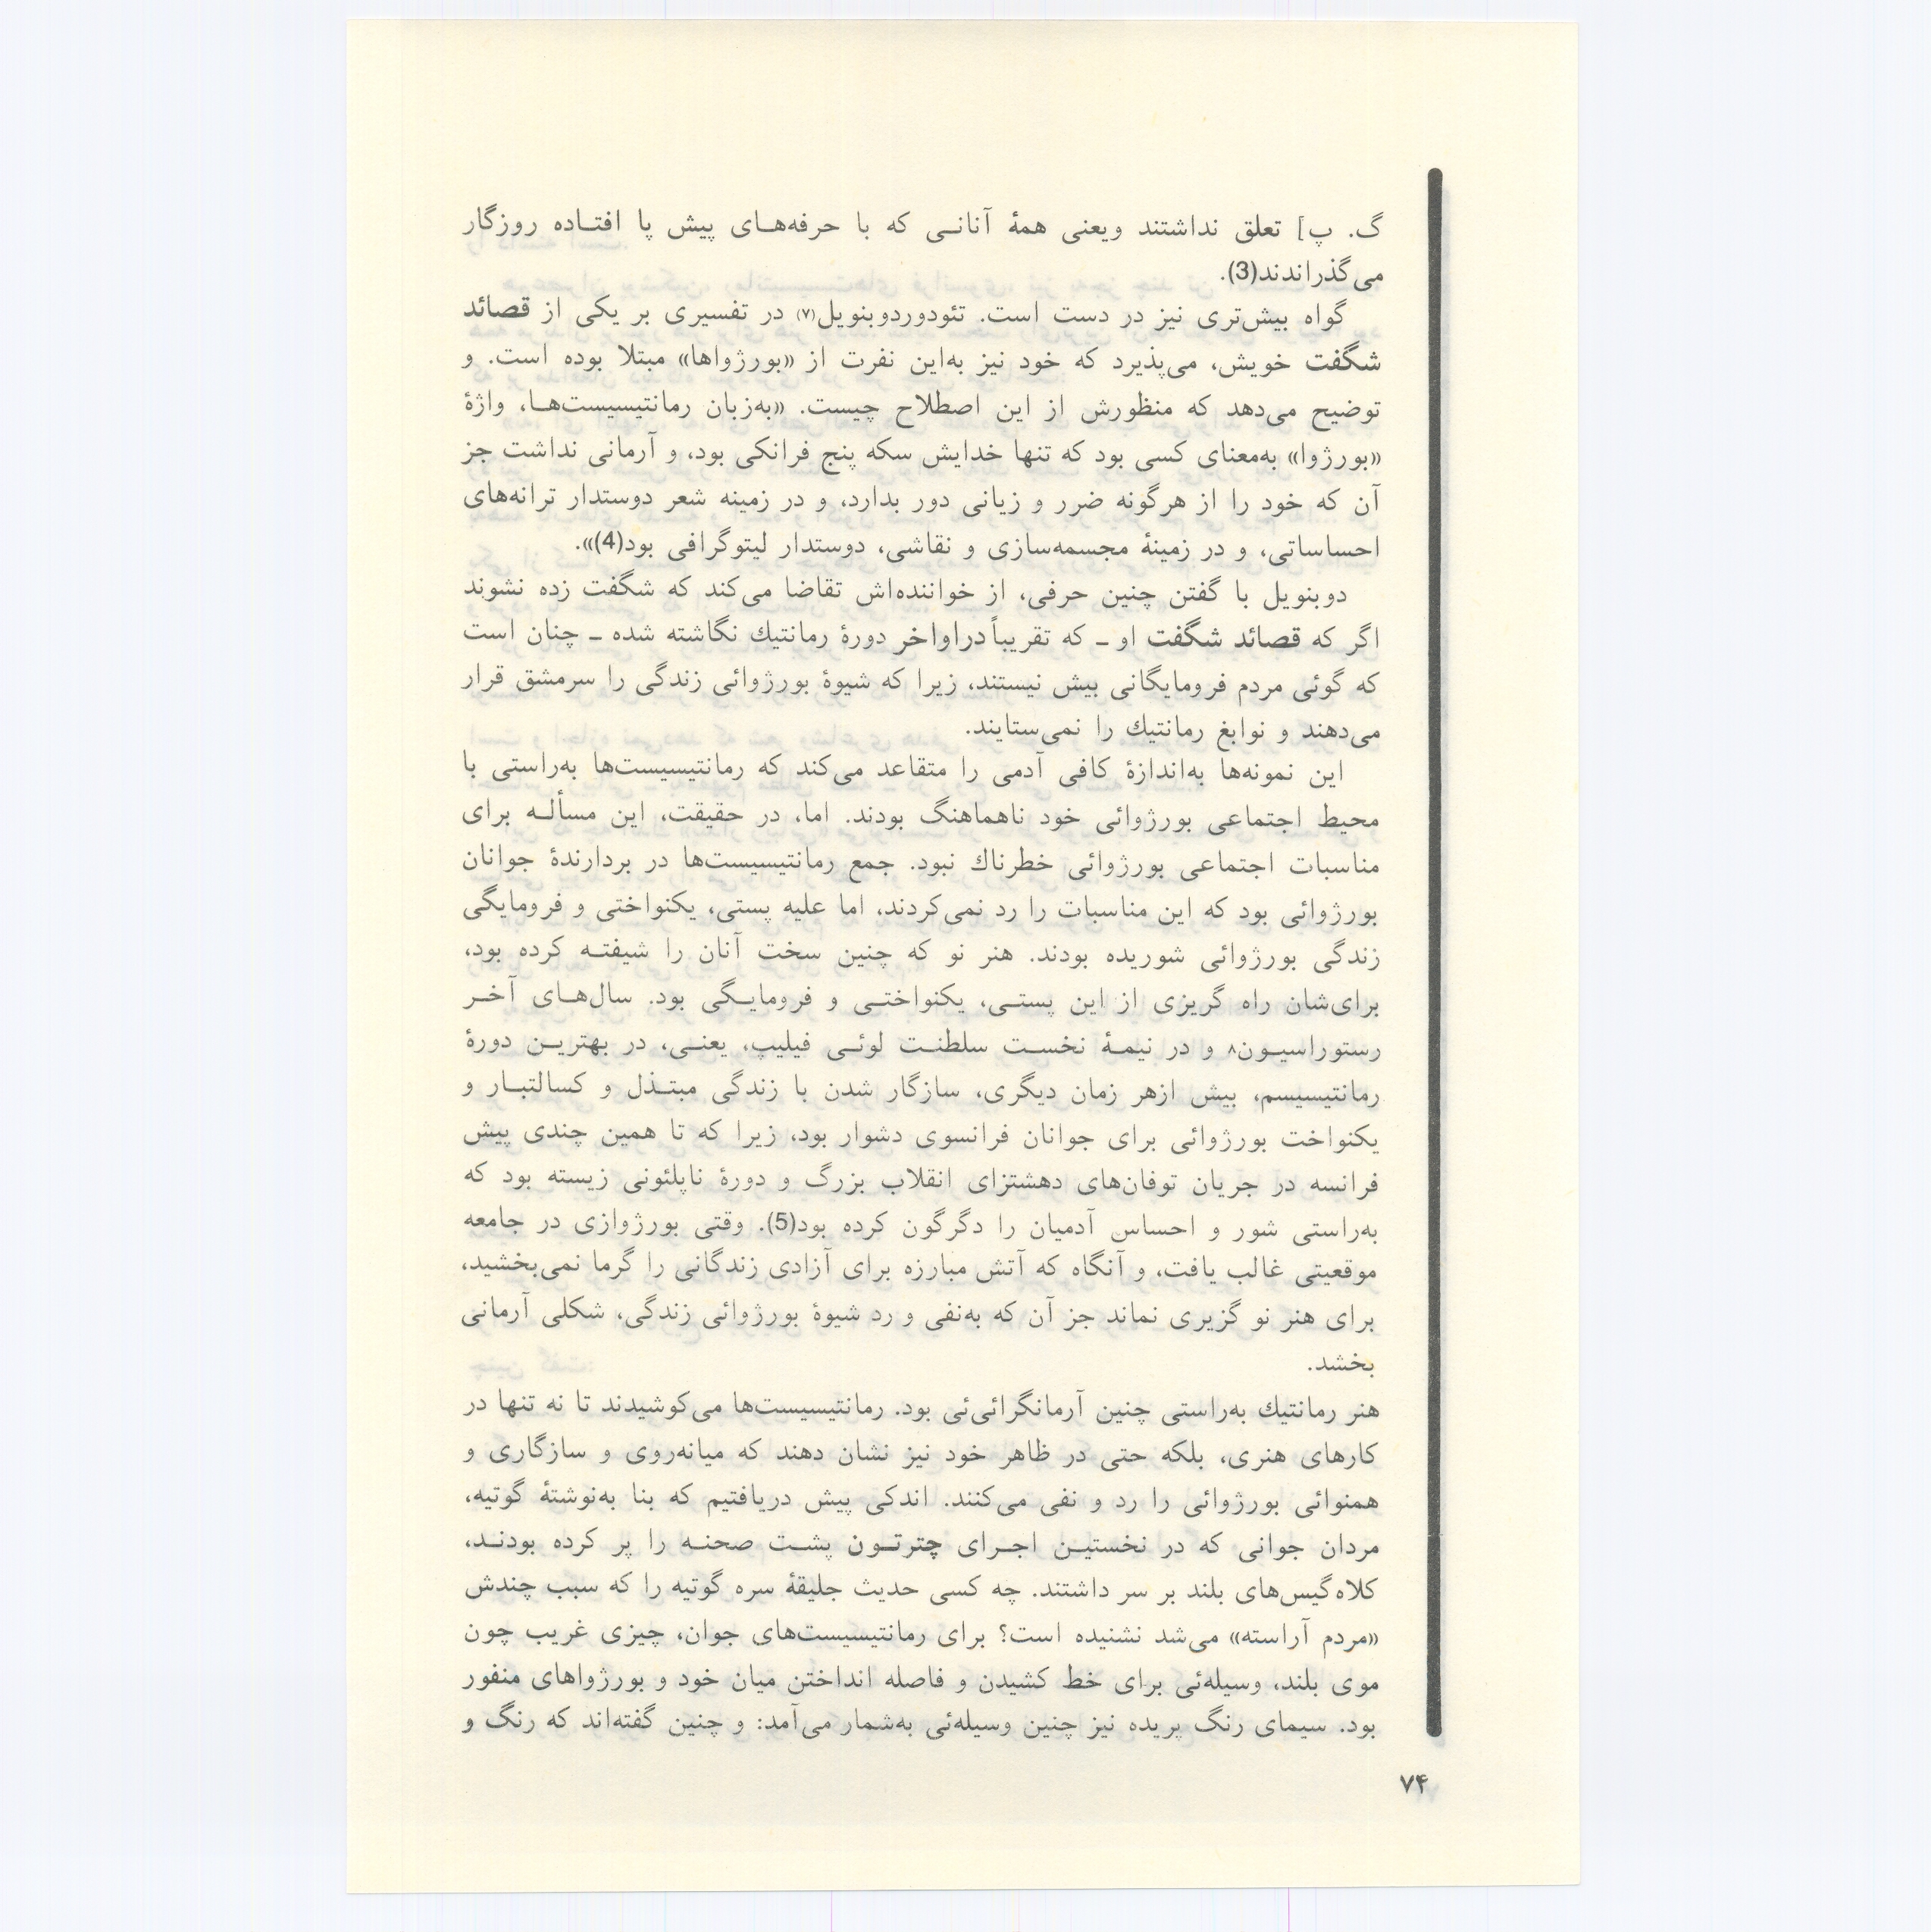 گ. پ] تعلق نداشتند ویعنی همهٔ آنانی که با حرفه‌های پیش پا افتاده روزگار
می‌گذراندند(3).
گواه بیش‌تری نیز در دست است. تئودوردوبنویل(۷) در تفسیری بر یکی از قصائد
شگفت خویش، می‌پذیرد که خود نیز به‌این نفرت از «بورژواها» مبتلا بوده است. و
توضیح می‌دهد که منظورش از این اصطلاح چیست. «به‌زبان رمانتیسیست‌ها، واژهٔ
«بورژوا» به‌معنای کسی بود که تنها خدایش سکه پنج فرانکی بود، و آرمانی نداشت جز
آن که خود را از هرگونه ضرر و زیانی دور بدارد، و در زمینه شعر دوستدار ترانه‌های
احساساتی، و در زمینهٔ مجسمه‌سازی و نقاشی، دوستدار لیتوگرافی بود(4)».
دوبنویل با گفتن چنین حرفی، از خواننده‌اش تقاضا می‌کند که شگفت زده نشوند
اگر که قصائد شگفت او ـ که تقریباً دراواخر دورهٔ رمانتیك نگاشته شده ـ چنان است
که گوئی مردم فرومایگانی بیش نیستند، زیرا که شیوهٔ بورژوائی زندگی را سرمشق قرار
می‌دهند و نوابغ رمانتیك را نمی‌ستایند.
این نمونه‌ها به‌اندازهٔ کافی آدمی را متقاعد می‌کند که رمانتیسیست‌ها به‌راستی با
محیط اجتماعی بورژوائی خود ناهماهنگ بودند. اما، در حقیقت، این مسأله برای
مناسبات اجتماعی بورژوائی خطرناك نبود. جمع رمانتیسیست‌ها در بردارندهٔ جوانان
بورژوائی بود که این مناسبات را رد نمی‌کردند، اما علیه پستی، یکنواختی و فرومایگی
زندگی بورژوائی شوریده بودند. هنر نو که چنین سخت آنان را شیفته کرده بود،
برای‌شان راه گریزی از این پستی، یکنواختی و فرومایگی بود. سال‌های آخر
رستوراسیون۸ و در نیمهٔ نخست سلطنت لوئی فیلیپ، یعنی، در بهترین دورهٔ
رمانتیسیسم، بیش ازهر زمان دیگری، سازگار شدن با زندگی مبتذل و کسالتبار و
یکنواخت بورژوائی برای جوانان فرانسوی دشوار بود، زیرا که تا همین چندی پیش
فرانسه در جریان توفان‌های دهشتزای انقلاب بزرگ و دورهٔ ناپلئونی زیسته بود که
به‌راستی شور و احساس آدمیان را دگرگون کرده بود(5). وقتی بورژوازی در جامعه
موقعیتی غالب یافت، و آنگاه که آتش مبارزه برای آزادی زندگانی را گرما نمی‌بخشید،
برای هنر نو گزیری نماند جز آن که به‌نفی و رد شیوهٔ بورژوائی زندگی، شکلی آرمانی
بخشد.
هنر رمانتیك به‌راستی چنین آرمانگرائی‌ئی بود. رمانتیسیست‌ها می‌کوشیدند تا نه تنها در
کارهای هنری، بلکه حتی در ظاهر خود نیز نشان دهند که میانه‌روی و سازگاری و
همنوائی بورژوائی را رد و نفی می‌کنند. اندکی پیش دریافتیم که بنا به‌نوشتهٔ گوتیه،
مردان جوانی که در نخستین اجرای چترتون پشت صحنه را پر کرده بودند،
کلاه‌گیس‌های بلند بر سر داشتند. چه کسی حدیث جلیقهٔ سره گوتیه را که سبب چندش
«مردم آراسته» می‌شد نشنیده است؟ برای رمانتیسیست‌های جوان، چیزی غریب چون
موی بلند، وسیله‌ئی برای خط کشیدن و فاصله انداختن میان خود و بورژواهای منفور
بود. سیمای رنگ پریده نیز چنین وسیله‌ئی به‌شمار می‌آمد: و چنین گفته‌اند که رنگ و
۷۴